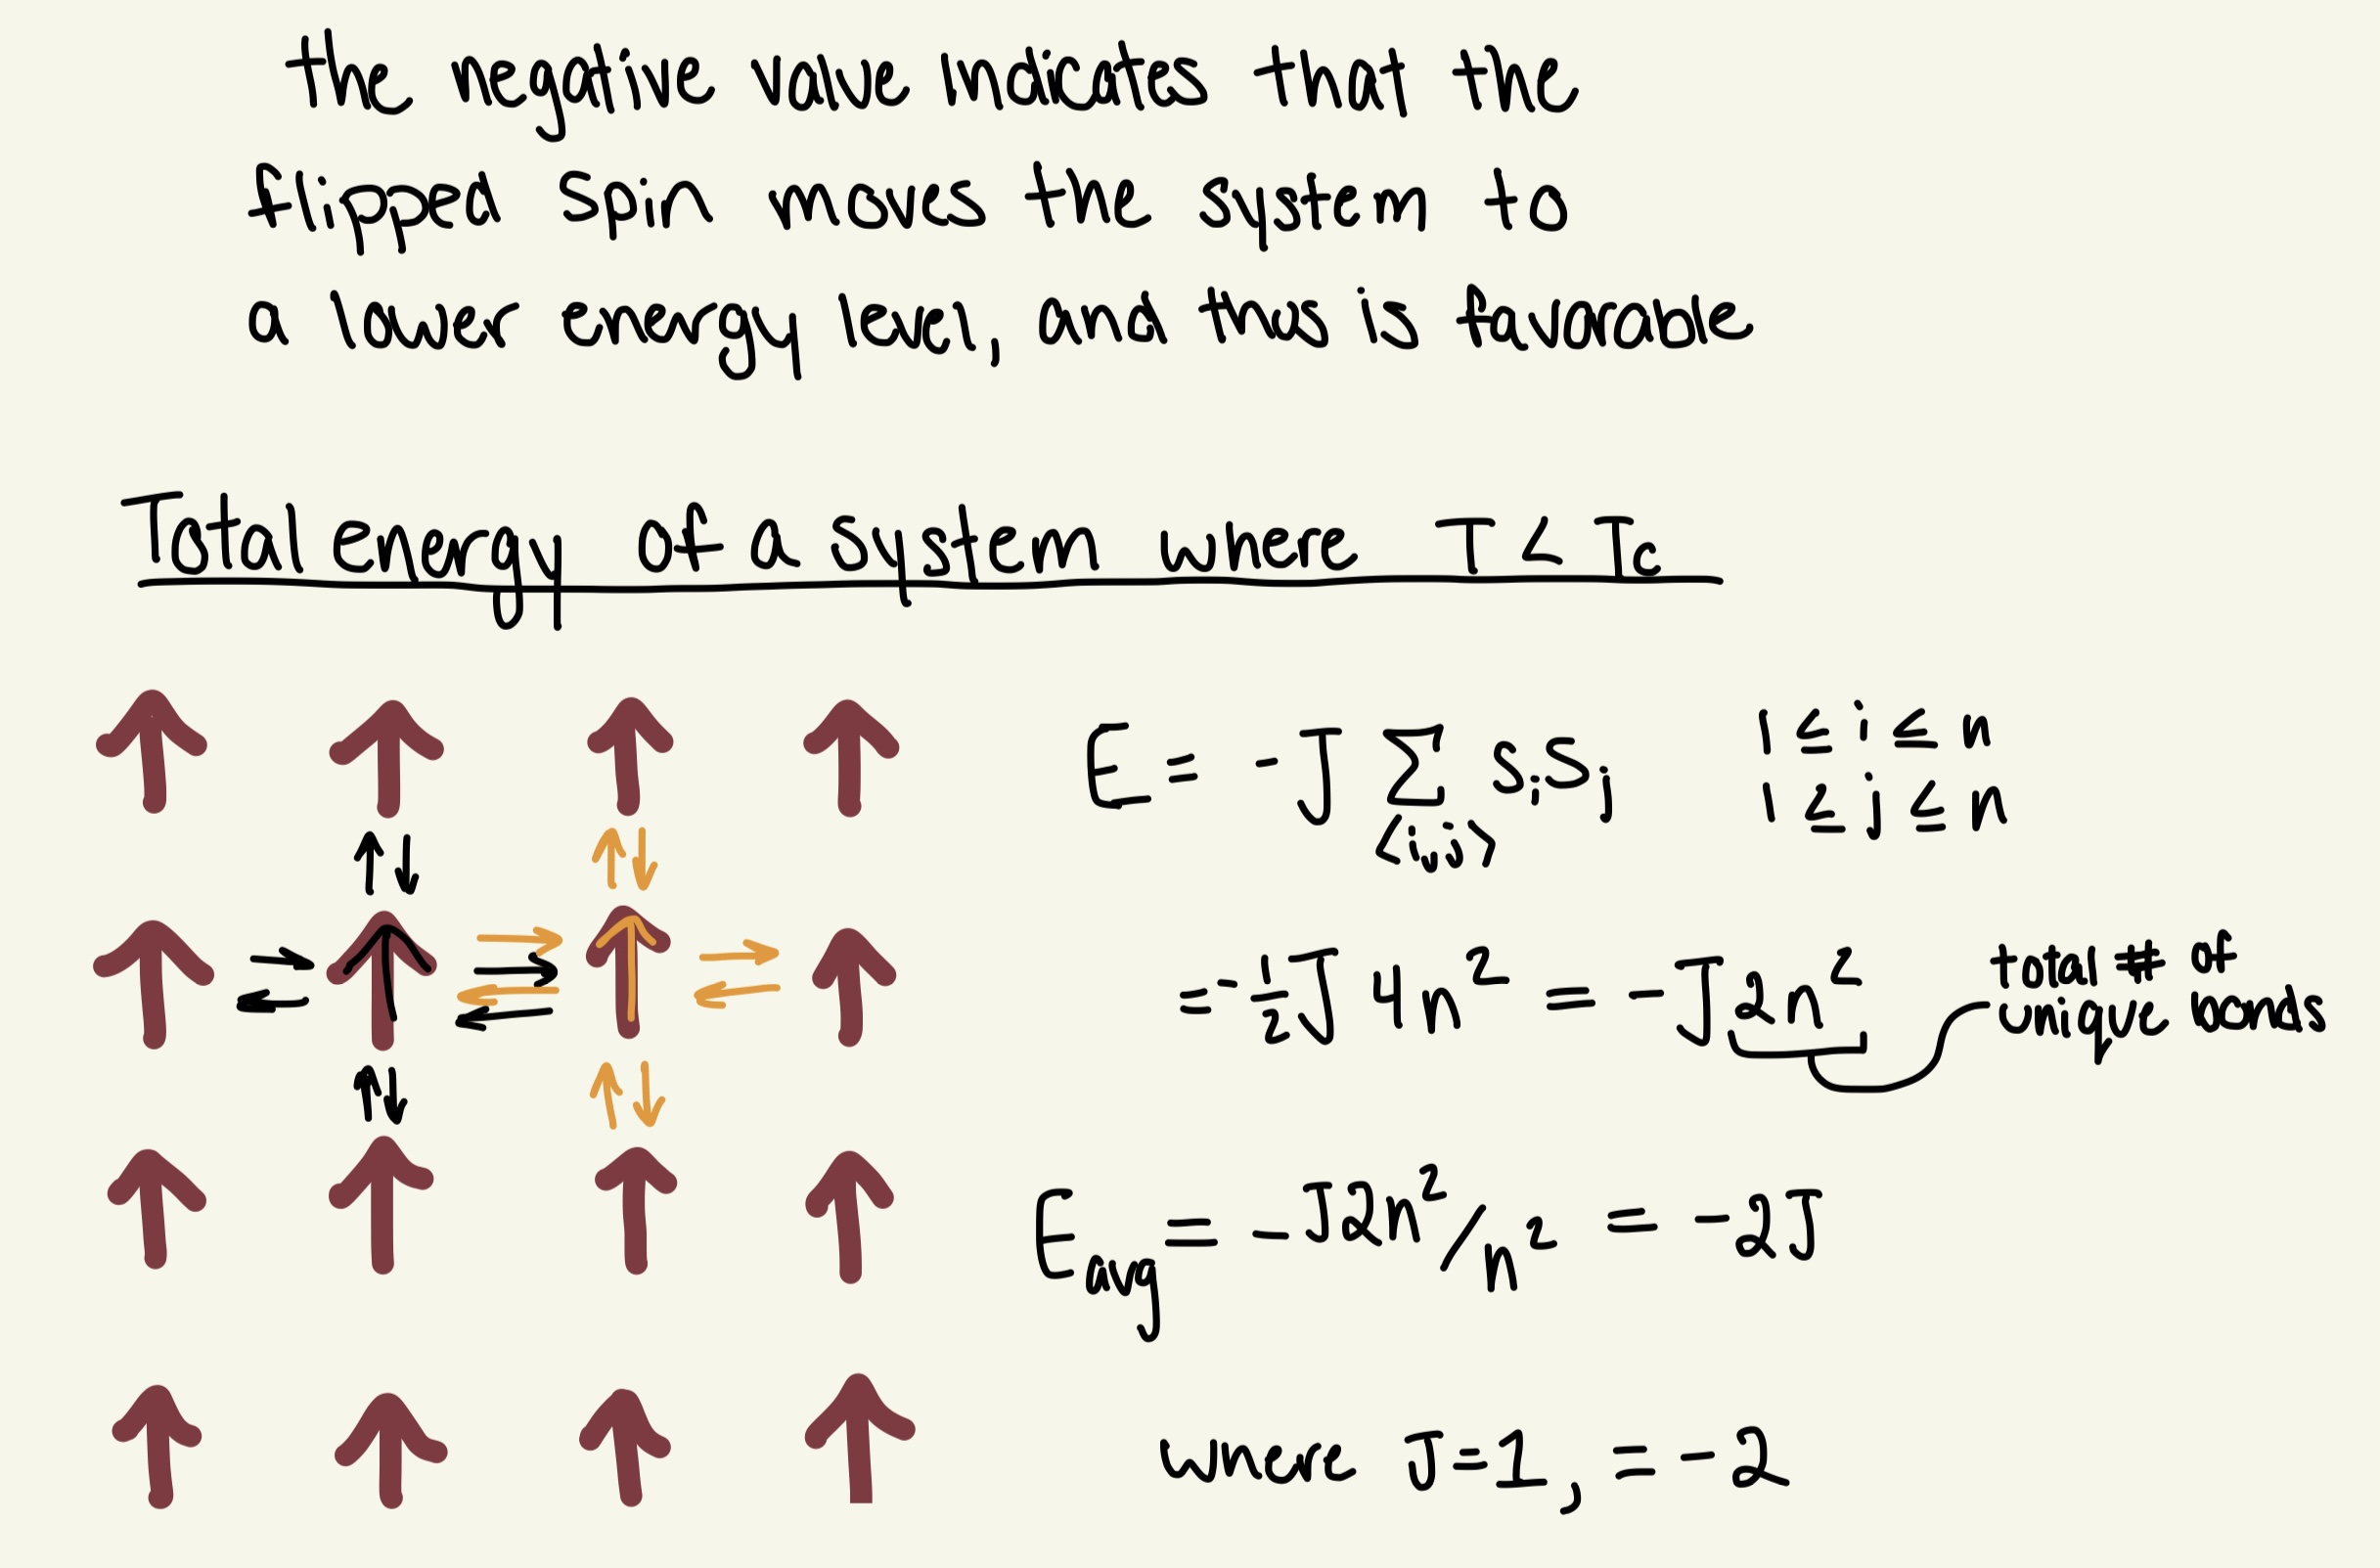 the negative value indicates that the
flipped spin moves the system to
a lower energy level, and this is favorable
Total energy of a system where T < Tc
E = -J Σ sᵢsⱼ
⟨i,j⟩
1 ≤ i ≤ n
1 ≤ j ≤ n
= -½J4n² = -J2n²
total # of
unique bonds
Eavg = -J2n²/n² = -2J
where J=1, = -2